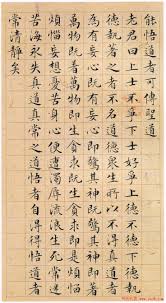 能悟道者可傳聖道
老君曰上士不爭下士好爭上德不德下德執
德執著之者不名道德眾生所以不得真道者
為有妄心既有妄心即驚其神既驚其神即著
萬物既著萬物即生貪求既生貪求即是煩惱
煩惱妄想憂苦身心便遭濁辱流浪生死常沉
苦海永失真道真常之道悟者自得得悟道者
常清靜矣